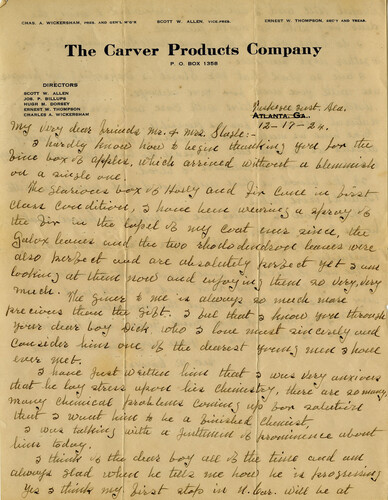 CHAS. A. WICKERSHAM, PRES. AND GEN'L M'G'R SCOTT W. ALLEN, VICE-PRES. ERNEST W. THOMPSON, SEC'Y AND TREAS.
The Carver Products Company
P. O. BOX 1358
DIRECTORS
SCOTT W. ALLEN
JOS. P. BILLUPS
HUGH M. DORSEY
ERNEST W. THOMPSON
CHARLES A. WICKERSHAM
Tuskegee Inst. Ala.
ATLANTA, GA.
12-17-24.
My very dear friends Mr. & Mrs.
I hardly know how to begin thanking you for the
fine box of apples, which arrived without a blemmish
on a single one.
The glorious box of Holly and Fir came in first
class condition, I have been wearing a spray of
the Fir in the lapel of my coat ever since, the
Galox leaves and the two rhododendron leaves were
also perfect and are absolutely perfect yet I am
looking at them now and enjoying them so very, very
much.
The giver to me is always so much more
precious than the gift. I feel that I know you through
your dear boy Dick who I love most sincerely and
Consider him one of the dearest young men I have
ever met.
I have just written him that I was very anxious
that he lay stress upon his Chemistry, there are so many,
many Chemical problems coming up for solution
that I want him to be a finished Chemist.
I was talking with a gentleman of prominence about
him today.
I think of the dear boy all of the time and am
always glad when he tells me how he is progressing
Yes I think my first stop in N. Car. will be at